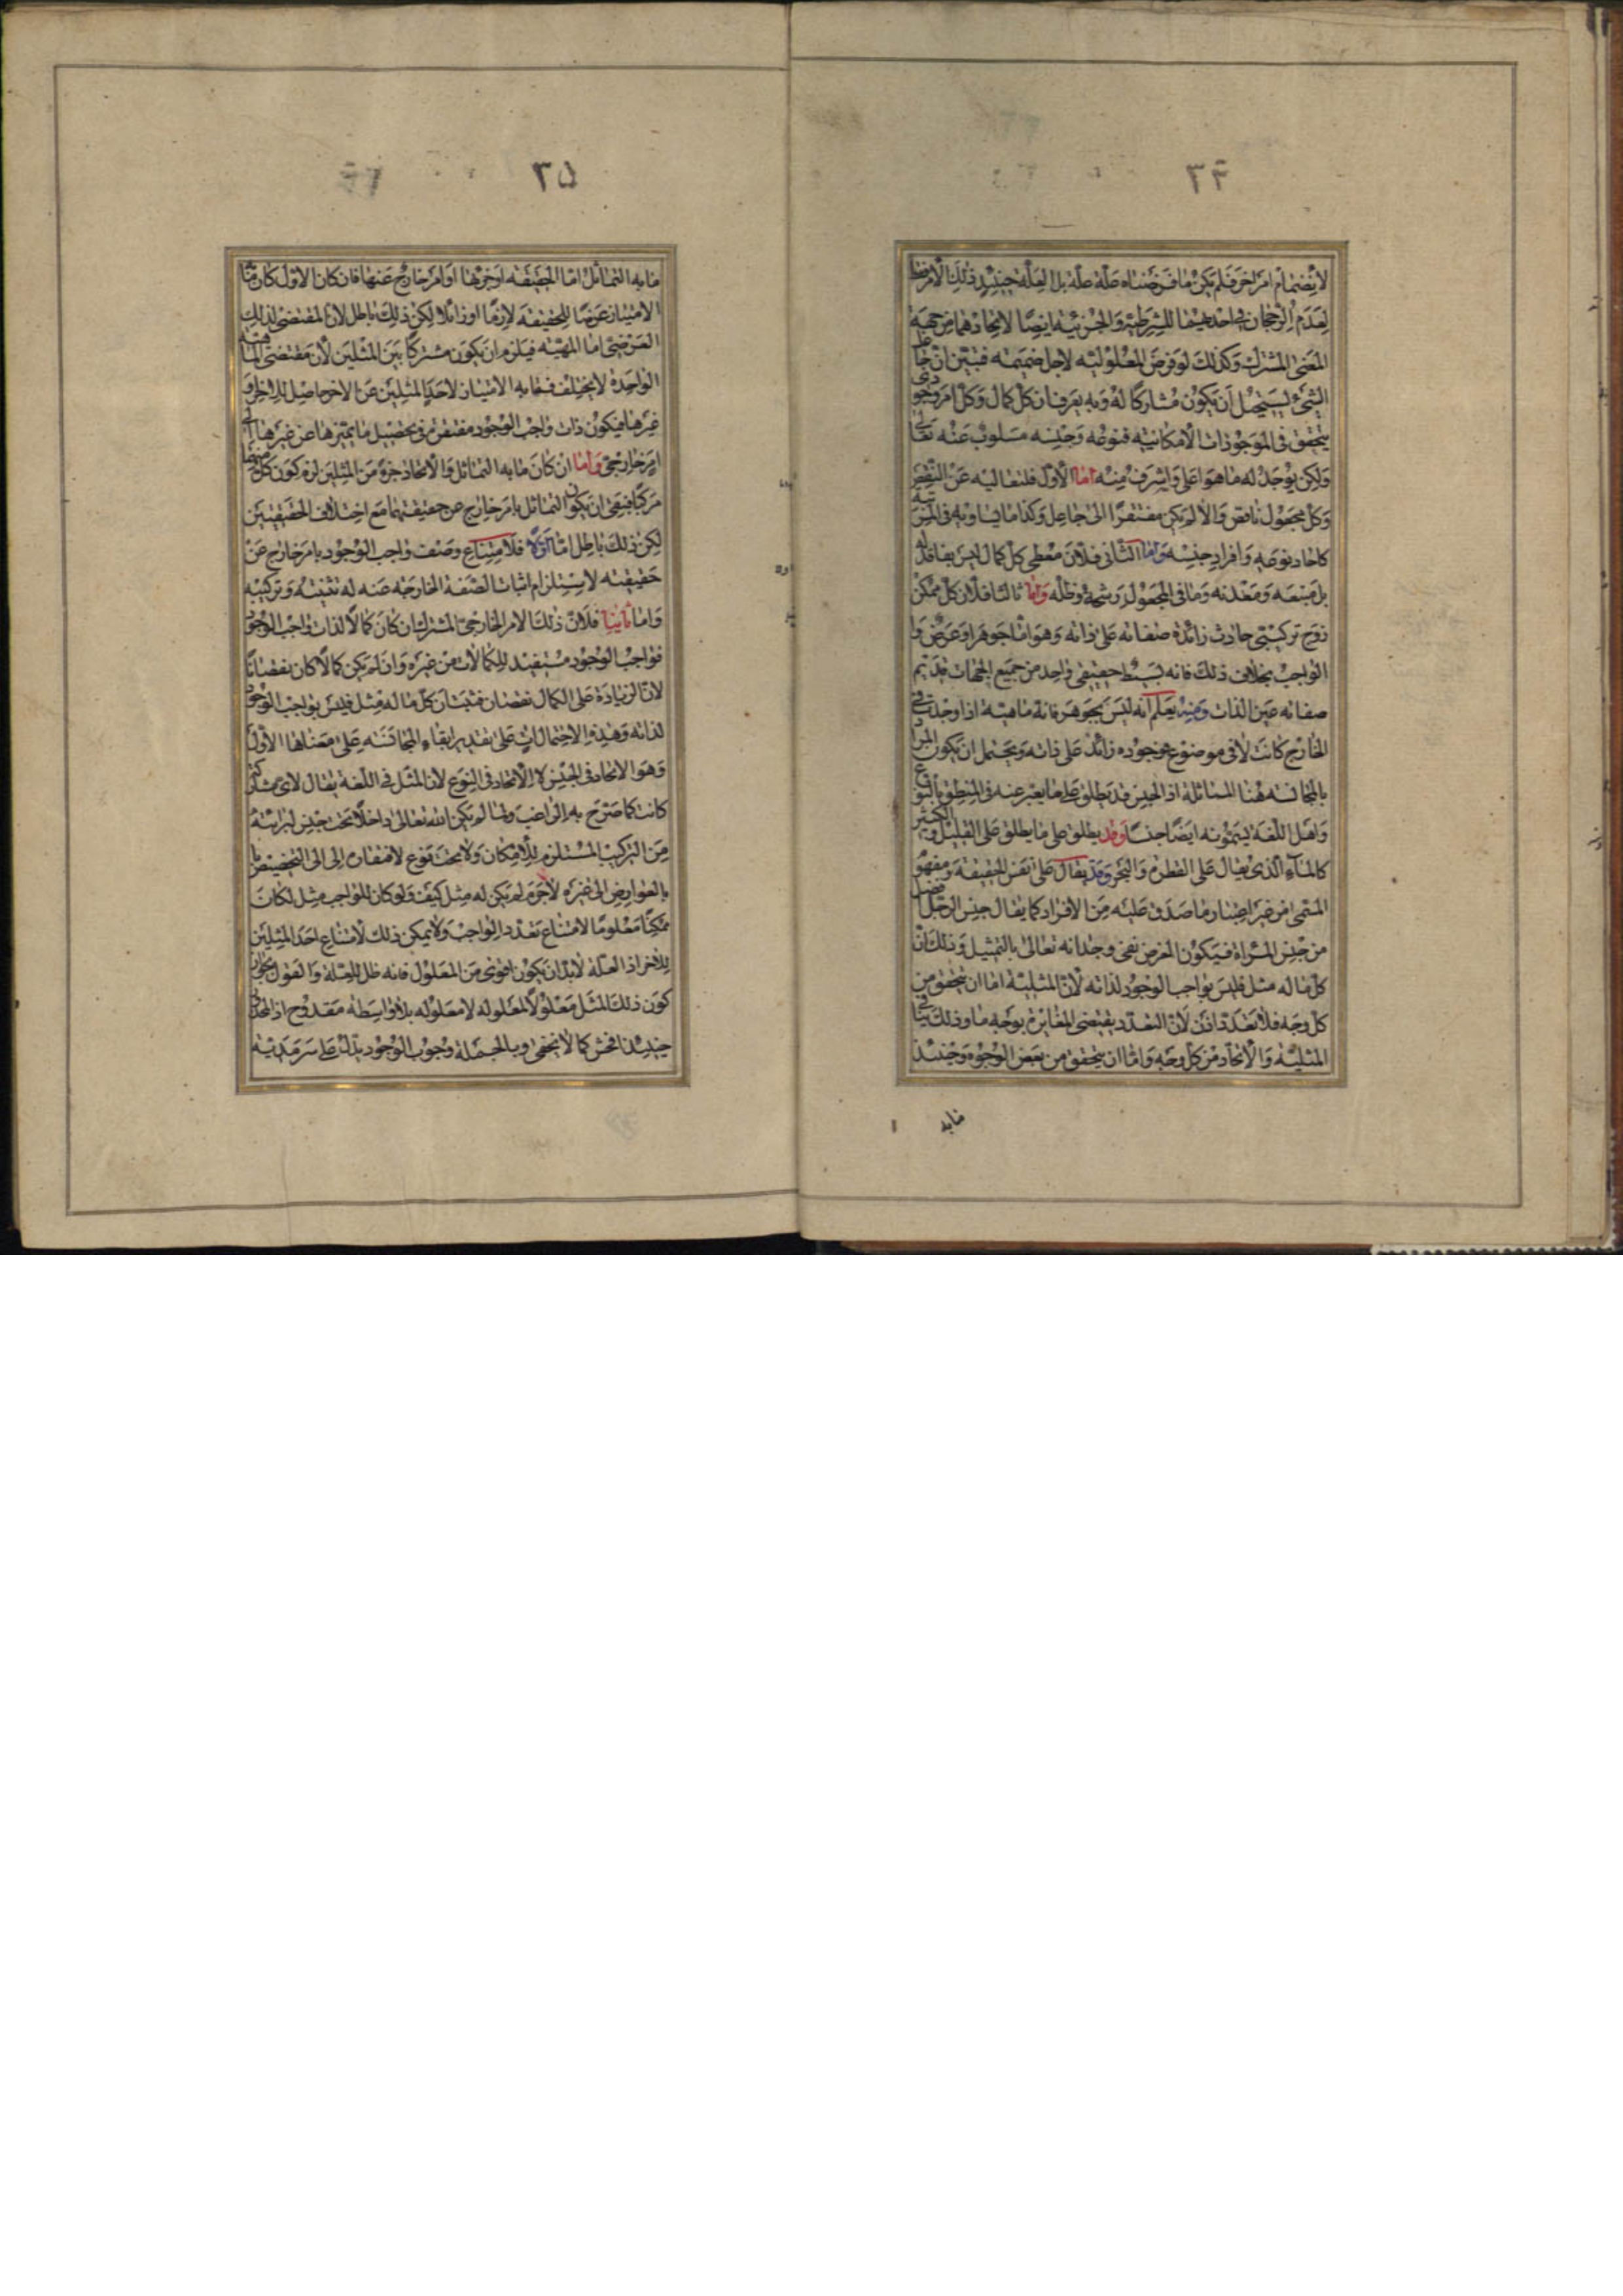 ٣٤
لانضمام امر اخر فلم يكن ما فرضناه علة علة بل العلة حينئذ ذلك الامر
لعدم الرجحان في احدهما للشرطية والجزئية ايضا لاتحادهما من جهة
المعنى المشترك وكذلك لو فرض المعلولية لاجل ضميمة فتبين ان جاعل
الشيء يستحيل ان يكون مشاركا له وبه يعرف ان كل كمال وكل امر وجودي
يتحقق في الموجودات الامكانية فنوعه وجنسه مسلوب عنه تعالى
ولكن يوجد له ما هو اعلى واشرف منه اما الاول فلتعاليه عن النقص
وكل مجعول ناقص والا لم يكن مفتقرا الى جاعل وكذا ما يساويه في المرتبة
كاحاد نوعه وافراد جنسه واما الثاني فلان معطي كل كمال ليس بفاقد له
بل منبعه ومعدنه وما في المجعول رشحه وظله واما ثالثا فلان كل ممكن
زوج تركيبي حادث زائدة صفاته على ذاته وهو اما جوهر او عرض و
الواجب بخلاف ذلك فانه بسيط حقيقي واحد من جميع الجهات قديم
صفاته عين الذات ومنه يعلم انه ليس بجوهر فانه ماهية اذا وجدت في
الخارج كانت لا في موضوع فوجوده زائد على ذاته ويحتمل ان يكون المراد
بالمجانسة هنا المماثلة اذ الجنس قد يطلق على ما يعبر عنه في المنطق بالنوع
واهل اللغة يسمونه ايضا جنسا وقد يطلق على ما يطلق على القليل والكثير
كالماء الذي يقال على القطرة والبحر وقد يقال على نفس الحقيقة ومفهوم
المسمى من غير اعتبار ما صدق عليه من الافراد كما يقال جنس الرجل افضل
من جنس المراة فيكون الغرض نفي وجدانه تعالى بالتمثيل وذلك ان
كل ما له مثل فليس بواجب الوجود لذاته لان المثلية اما ان يتحقق من
كل وجه فلا تعدد اذن لان التعدد يقتضي المغايرة بوجه ما وذلك ينافي
المثلية والاتحاد من كل وجه واما ان يتحقق من بعض الوجوه وحينئذ
ما به
٣٥
ما به التماثل اما الحقيقة او جزؤها او امر خارج عنها فان كان الاول كان ما به
الامتياز عرضا للحقيقة لازما او زائلا لكن ذلك باطل لان المقتضي لذلك
العرضي اما المهية فيلزم ان يكون مشتركا بين المثلين لان مقتضى الماهية
الواحدة لا يختلف فما به الامتياز لاحد المثلين عن الاخر حاصل للاخر و
غيرها فيكون ذات واجب الوجود مفتقرة في تحصيل ما يميزها عن غيرها الى
امر خارجي واما ان كان ما به التماثل والاتحاد جزء من المثلين لزم كون كل منهما
مركبا فبقي ان يكون التماثل بامر خارج عن حقيقتهما مع اختلاف الحقيقتين
لكن ذلك باطل اما اولا فلامتناع وصف واجب الوجود بامر خارج عن
حقيقته لاستلزام اثبات الصفة الخارجة عنه له تثنيته وتركيبه
واما ثانيا فلان ذلك الامر الخارجي المشترك ان كان كمالا لذات واجب الوجود
فواجب الوجود مستفيد للكمالات من غيره وان لم يكن كمالا كان نقصانا
لان الزيادة على الكمال نقصان فثبت ان كل ما له مثل فليس بواجب الوجود
لذاته وهذه الاحتمالات على تقدير ابقاء المجانسة على معناها الاول
وهو الاتحاد في الجنس لا الاتحاد في النوع لان المثل في اللغة يقال لاي مشاركة
كانت كما صرح به الراغب ولما لم يكن الله تعالى داخلا تحت جنس لبرائته
من التركيب المستلزم للامكان ولا تحت نوع لافتقاره الى الى التخصيص
بالعوارض الى غيره لا جرم لم يكن له مثل كيف ولو كان للواجب مثل لكان
ممكنا معلوما لامتناع تعدد الواجب ولا يمكن ذلك لامتناع احد المثلين
للاخر اذ العلة لابد ان يكون اقوى من المعلول فانه ظل للعلة والقول بجواز
كون ذلك المثل معلولا لمعلوله لا معلوله بلا واسطة مقدوح اذ المحذور
حينئذ افحش كما لا يخفى وبالجملة وجوب الوجود يدل على سرمديته